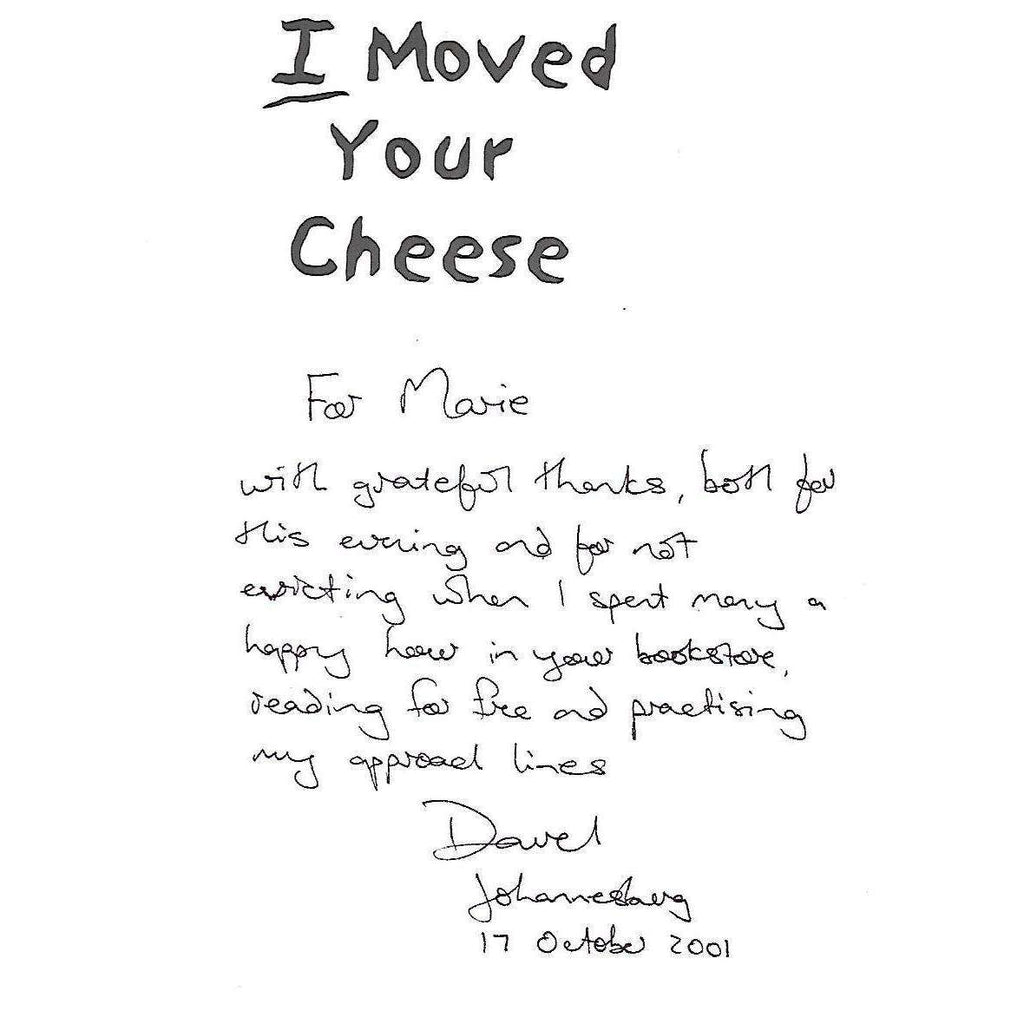 I Moved
Your
Cheese
For Marie
with grateful thanks, both for
this evening and for not
evicting when I spent many a
happy hour in your bookstore,
reading for free and practising
my approach lines
Darrel
Johannesburg
17 October 2001